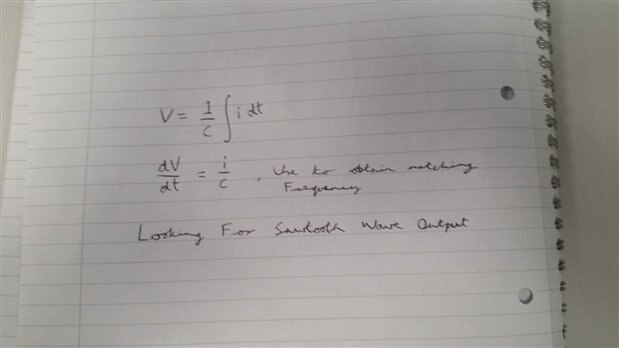 V = 1/C ∫ i dt
dV/dt = i/C , Use to obtain matching
Frequency
Looking For Sawtooth Wave Output